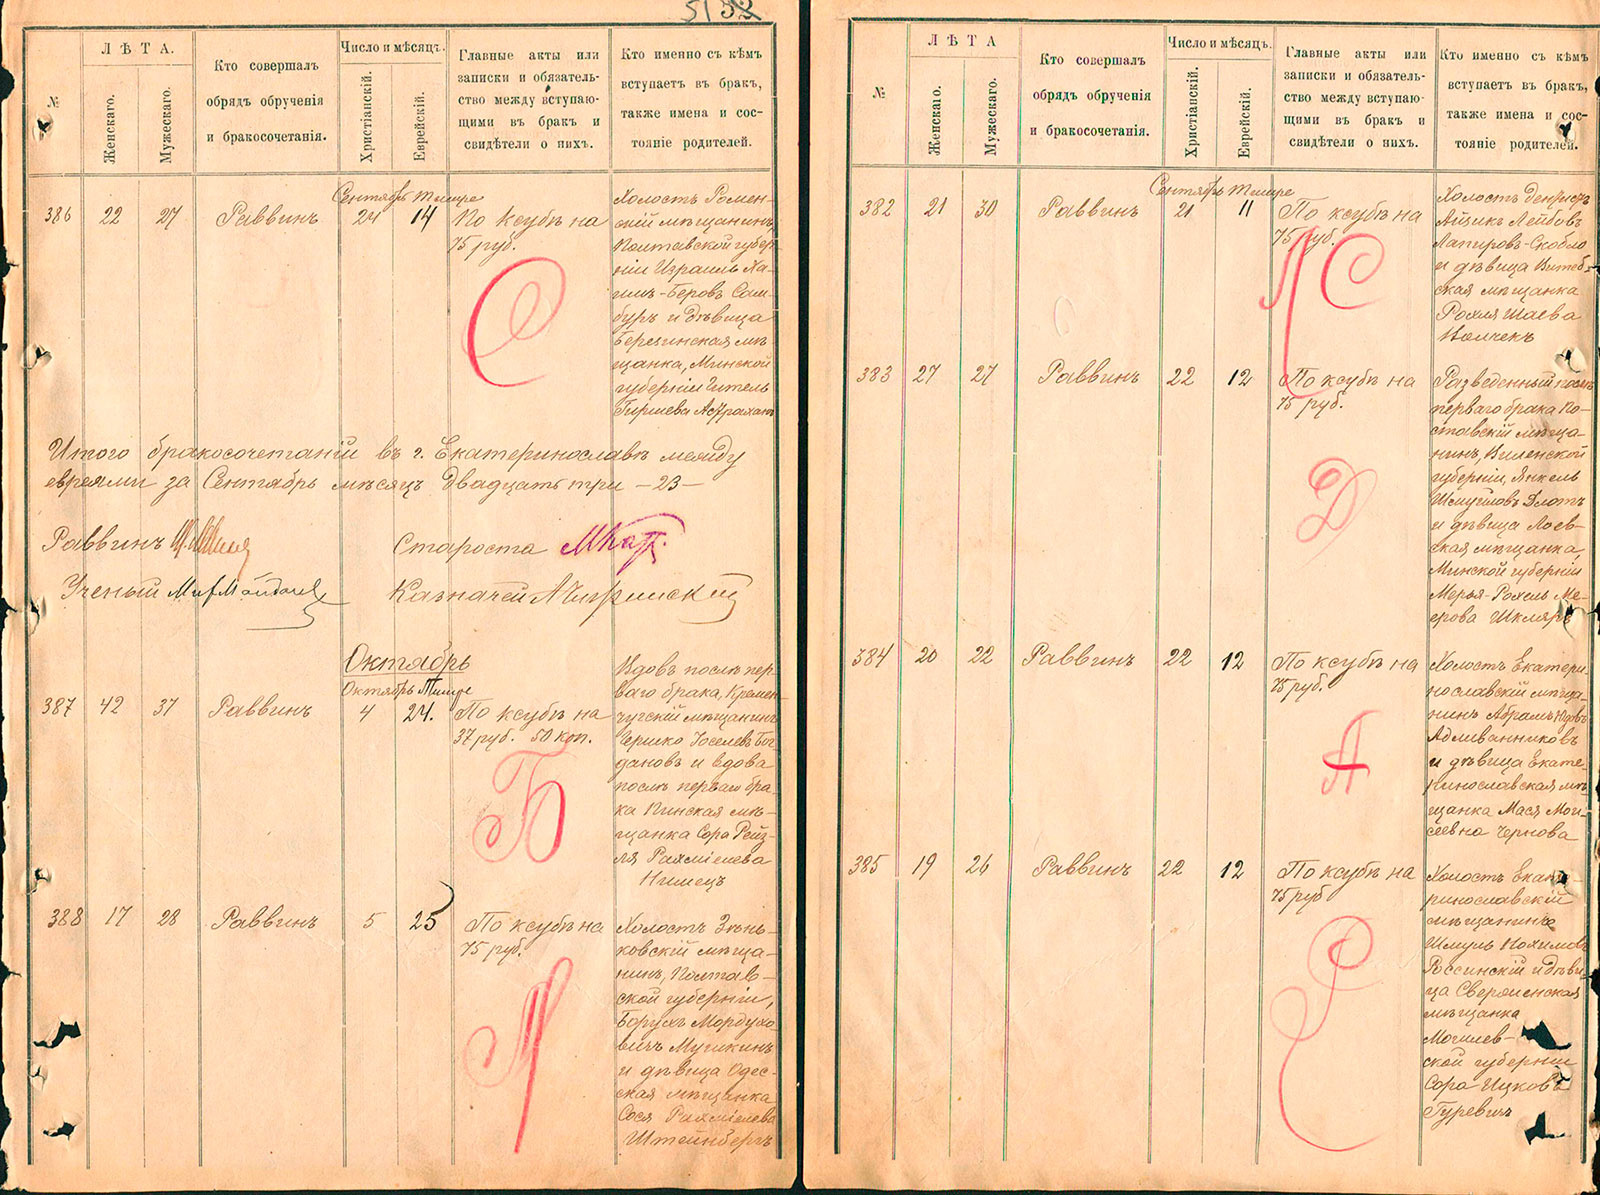 51 32
№
ЛѢТА.
Женскаго.
Мужескаго.
Кто совершалъ
обрядъ обрученія
и бракосочетанія.
Число и мѣсяцъ.
Христіанскій.
Еврейскій.
Главные акты или
записки и обязатель-
ство между вступаю-
щими въ бракъ и
свидѣтели о нихъ.
Кто именно съ кѣмъ
вступаетъ въ бракъ,
также имена и сос-
тояніе родителей.
Сентябрь Тишре
386 22 27 Раввинъ 24 14 По ксубѣ на
75 руб.
Холостъ Ромен-
скій мѣщанинъ,
Полтавской губер-
ніи Израиль Ха-
имъ-Беровъ Сам-
буръ и дѣвица
Березинская мѣ-
щанка, Минской
губерніи Гитель
Гиршева Астраханъ
С
Итого бракосочетаній въ г. Екатеринославѣ между
евреями за Сентябрь мѣсяцъ двадцать три —23—
Раввинъ
Староста
Ученый
Казначей
Октябрь
Октябрь Тишре
387 42 37 Раввинъ 4 24. По ксубѣ на
37 руб. 50 коп.
Вдовъ послѣ пер-
ваго брака, Кремен-
чугскій мѣщанинъ
Гершко Іоселевъ Бог-
дановъ и вдова
послѣ перваго бра-
ка Пинская мѣ-
щанка Сора Рейз-
ля Рахміелева
Нимецъ
Б
388 17 28 Раввинъ 5 25 По ксубѣ на
75 руб.
Холостъ Зѣнь-
ковскій мѣща-
нинъ, Полтав-
ской губерніи,
Борухъ Мордухо-
вичъ Мушкинъ
и дѣвица Одес-
ская мѣщанка
Сося Рахміелева
Штейнбергъ
М
№
ЛѢТА
Женскаго.
Мужескаго.
Кто совершалъ
обрядъ обрученія
и бракосочетанія.
Число и мѣсяцъ.
Христіанскій.
Еврейскій.
Главные акты или
записки и обязатель-
ство между вступаю-
щими въ бракъ и
свидѣтели о нихъ.
Кто именно съ кѣмъ
вступаетъ въ бракъ,
также имена и сос-
тояніе родителей.
Сентябрь Тишре
382 21 30 Раввинъ 21 11 По ксубѣ на
75 руб.
Холостъ
Айзикъ Лейбовъ
Лапировъ-Скобло
и дѣвица Витеб-
ская мѣщанка
Рохля Шаева
Волчекъ
ЛС
383 27 27 Раввинъ 22 12 По ксубѣ на
75 руб.
Разведенный послѣ
перваго брака По-
ставскій мѣща-
нинъ, Виленской
губерніи, Янкель
Шмуйловъ Длотъ
и дѣвица Лоев-
ская мѣщанка,
Минской губерніи
Мерья-Рохель Ме-
ерова Шкляръ
Д
384 20 22 Раввинъ 22 12 По ксубѣ на
75 руб.
Холостъ Екатери-
нославскій мѣща-
нинъ Абрамъ
Адливанниковъ
и дѣвица Екате-
ринославская мѣ-
щанка Мася Мои-
сеевна Чернова
А
385 19 26 Раввинъ 22 12 По ксубѣ на
75 руб
Холостъ Екате-
ринославскій
мѣщанинъ
Шмуль Нохимовъ
Россинскій и дѣви-
ца Сверженская
мѣщанка
Могилев-
ской губерніи
Сора Ицкова
Гуревичъ
Р